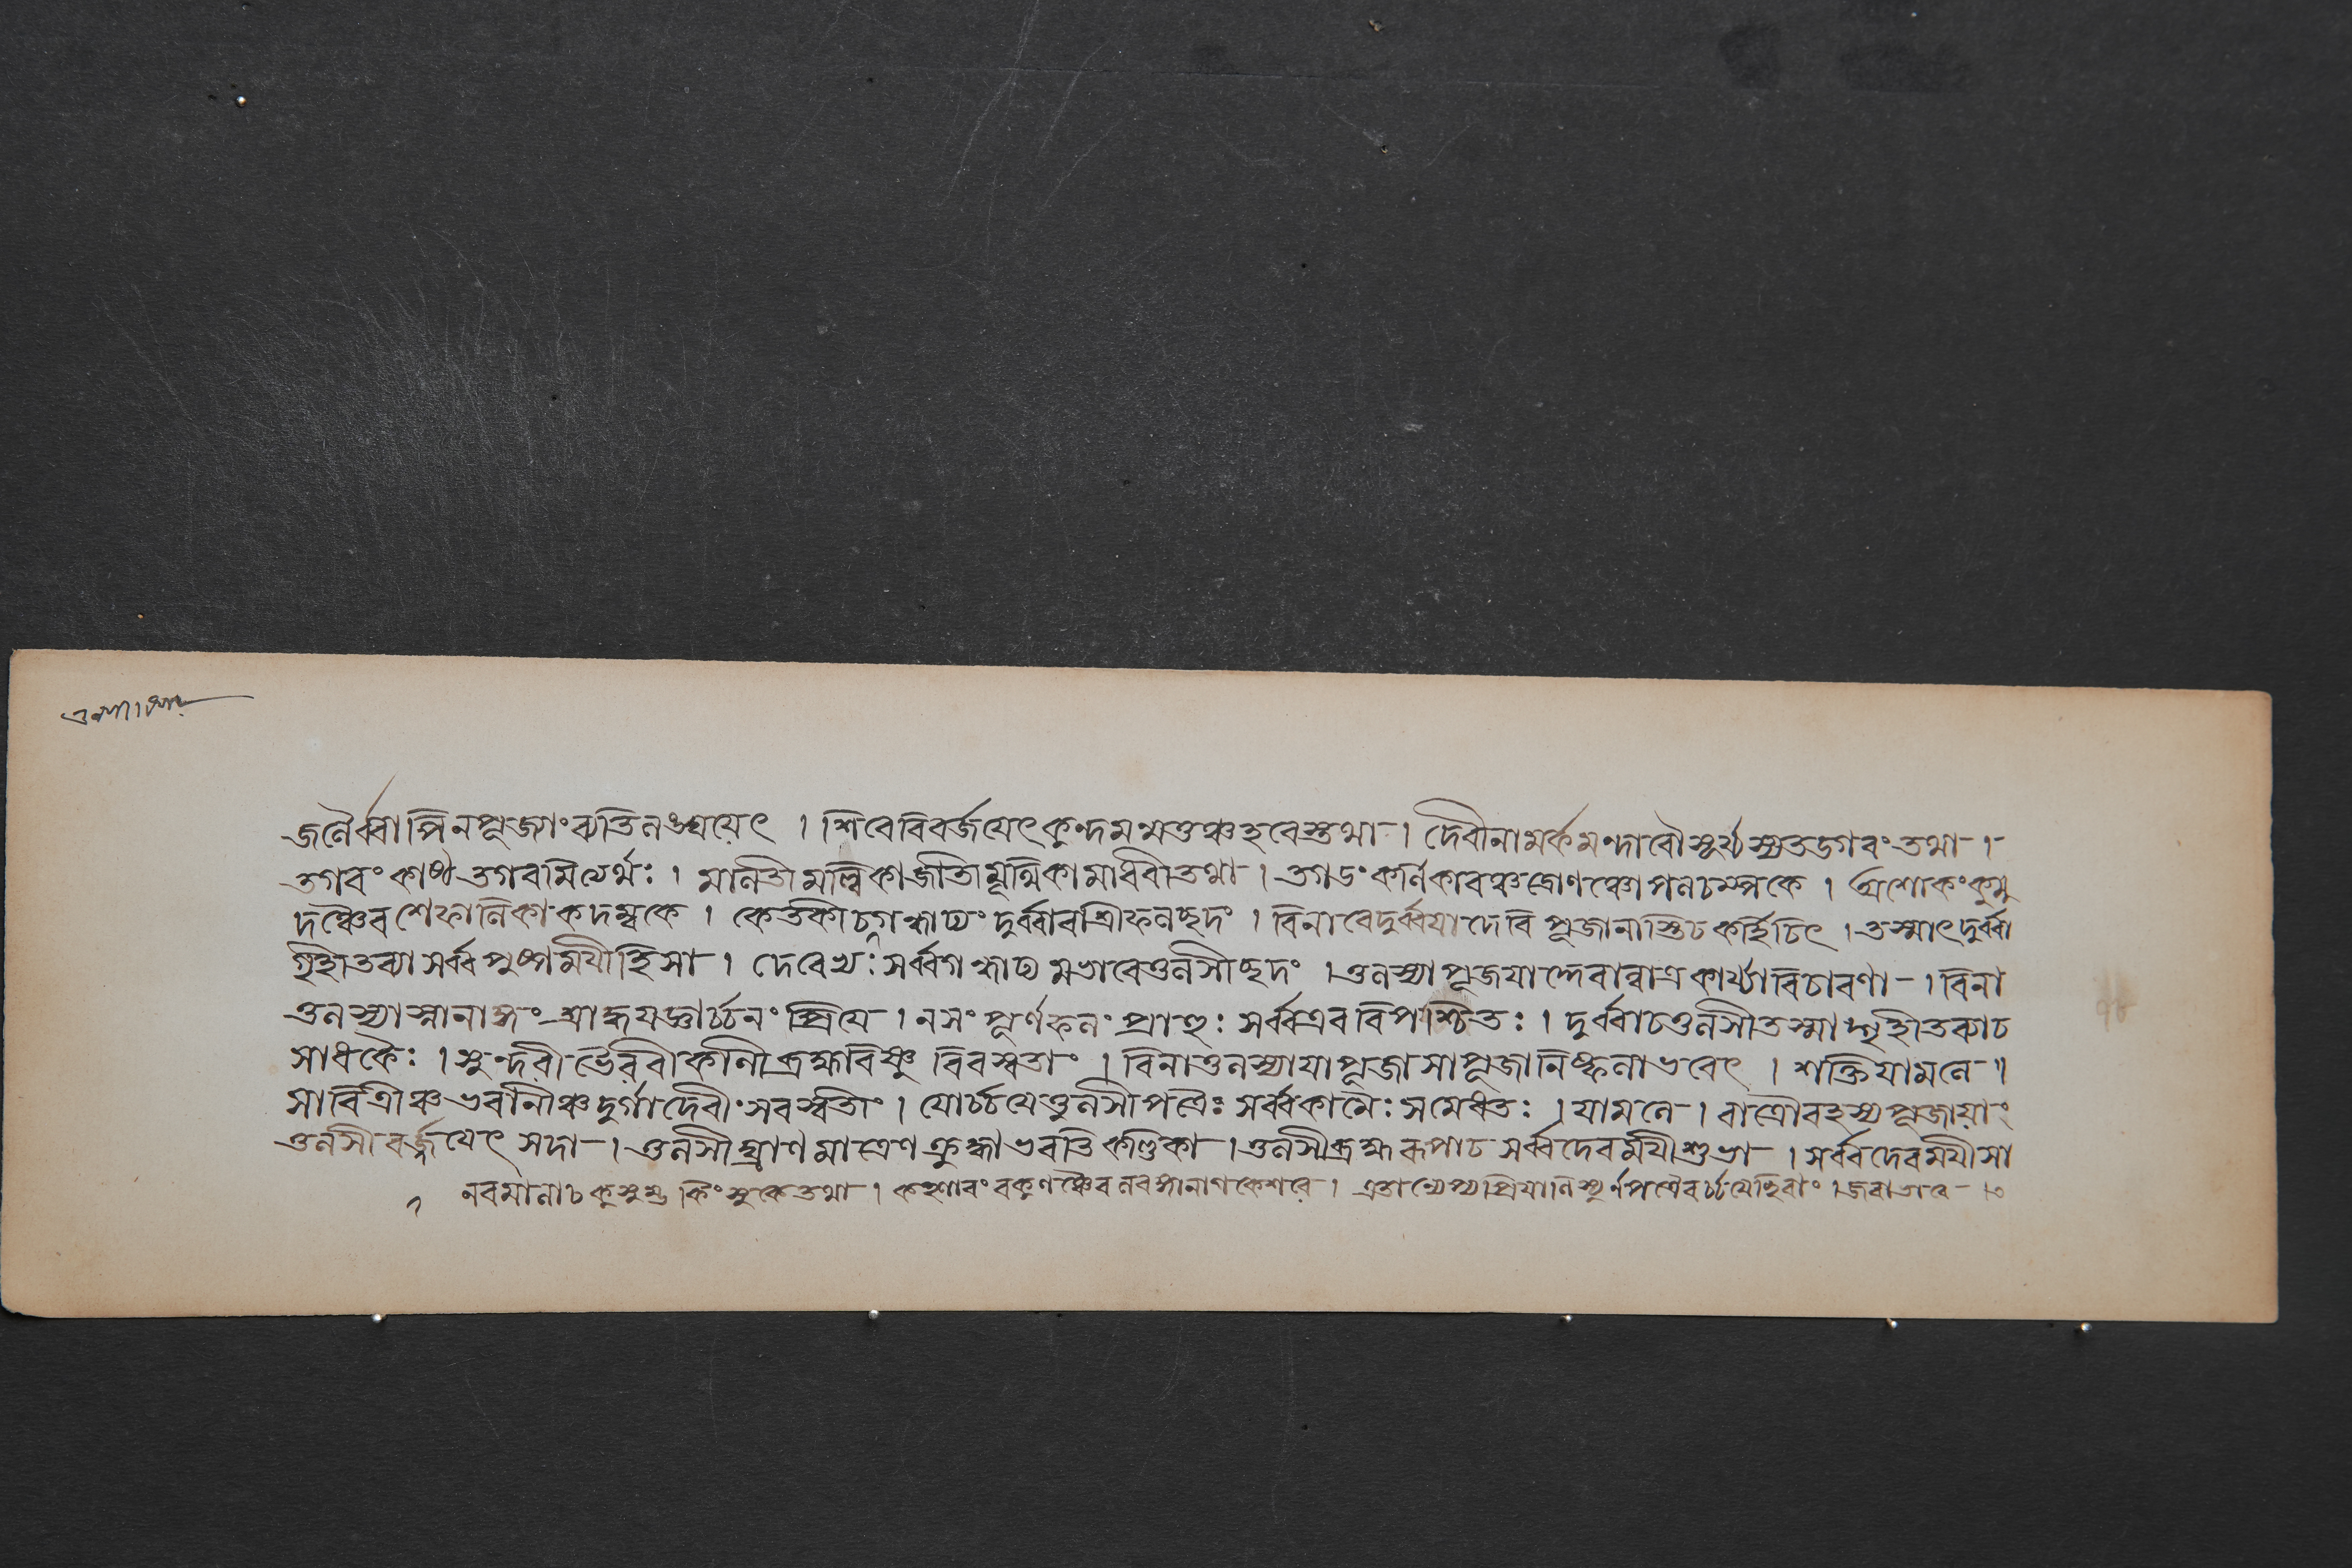 জলৈর্ব্বাপি ন পূজাং ব্যতিলঙ্ঘয়েৎ । শিবে বিবর্জয়েৎ কুন্দমুন্মত্তঞ্চ হরেস্তথা । দেবীনামর্কমন্দারৌ সূর্য্যস্য তগরং তথা ।
তগরং কাষ্ঠতগরমিত্যর্থঃ । মালতী মল্লিকা জাতী যূথিকা মাধবী তথা । তগড়ং কর্নিকারঞ্চ দ্রোণঞ্চোৎপলচম্পকে । অশোকং কুমু
দঞ্চৈব শেফালিকাকদম্বকে । কেতকী চ গন্ধাঢ্যং দুর্ব্বারশ্রীফলচ্ছদং । বিনা বে দুর্ব্বয়া দেবি পূজা নাস্তি চ কর্হিচিৎ । তস্মাৎ দুর্ব্বা
গৃহীতব্যা সর্ব্বপুষ্পময়ী হি সা । দেবেভ্যঃ সর্ব্বগন্ধাঢ্যমভাবে তুলসীচ্ছদং । তুলস্যা পূজয়েদ্দেবান্নাত্র কার্য্যা বিচারণা । বিনা
তুলস্যা স্নানাঙ্গং শ্রাদ্ধযজ্ঞার্চ্চনং প্রিয়ে । ন সংপূর্ণফলং প্রাহুঃ সর্ব্ব এব বিপশ্চিতঃ । দুর্ব্বা চ তুলসী তস্মাদ্গৃহীতব্যা চ
সাধকৈঃ । সুন্দরী ভৈরবী কালী ব্রহ্মবিষ্ণু বিবস্বতাং । বিনা তুলস্যা যা পূজা সা পূজা নিষ্ফলা ভবেৎ । শক্তিযামলে ॥
সাবিত্রীঞ্চ ভবানীঞ্চ দুর্গাদেবীং সরস্বতীং । যোর্চ্চয়েত্তুলসীপত্রৈঃ সর্ব্বকামৈঃ সমেধতঃ । যামলে । রাত্রৌ রহস্যপূজায়াং
তুলসী বর্জ্জয়েৎ সদা । তুলসীঘ্রাণমাত্রেণ ক্রুদ্ধা ভবতি চণ্ডিকা । তুলসী ব্রহ্মরূপা চ সর্ব্বদেবময়ী শুভা । সর্ব্বদেবময়ী সা
নবমালা চ কুসুম্ভ কিংসুকে তথা । কহ্লারং বকুলঞ্চৈব লবঙ্গনাগকেশরে । এতান্যেপ্যপ্রিয়ানি স্যু র্নপত্রৈরর্চ্চয়েচ্ছিবাং । জবাভাবে